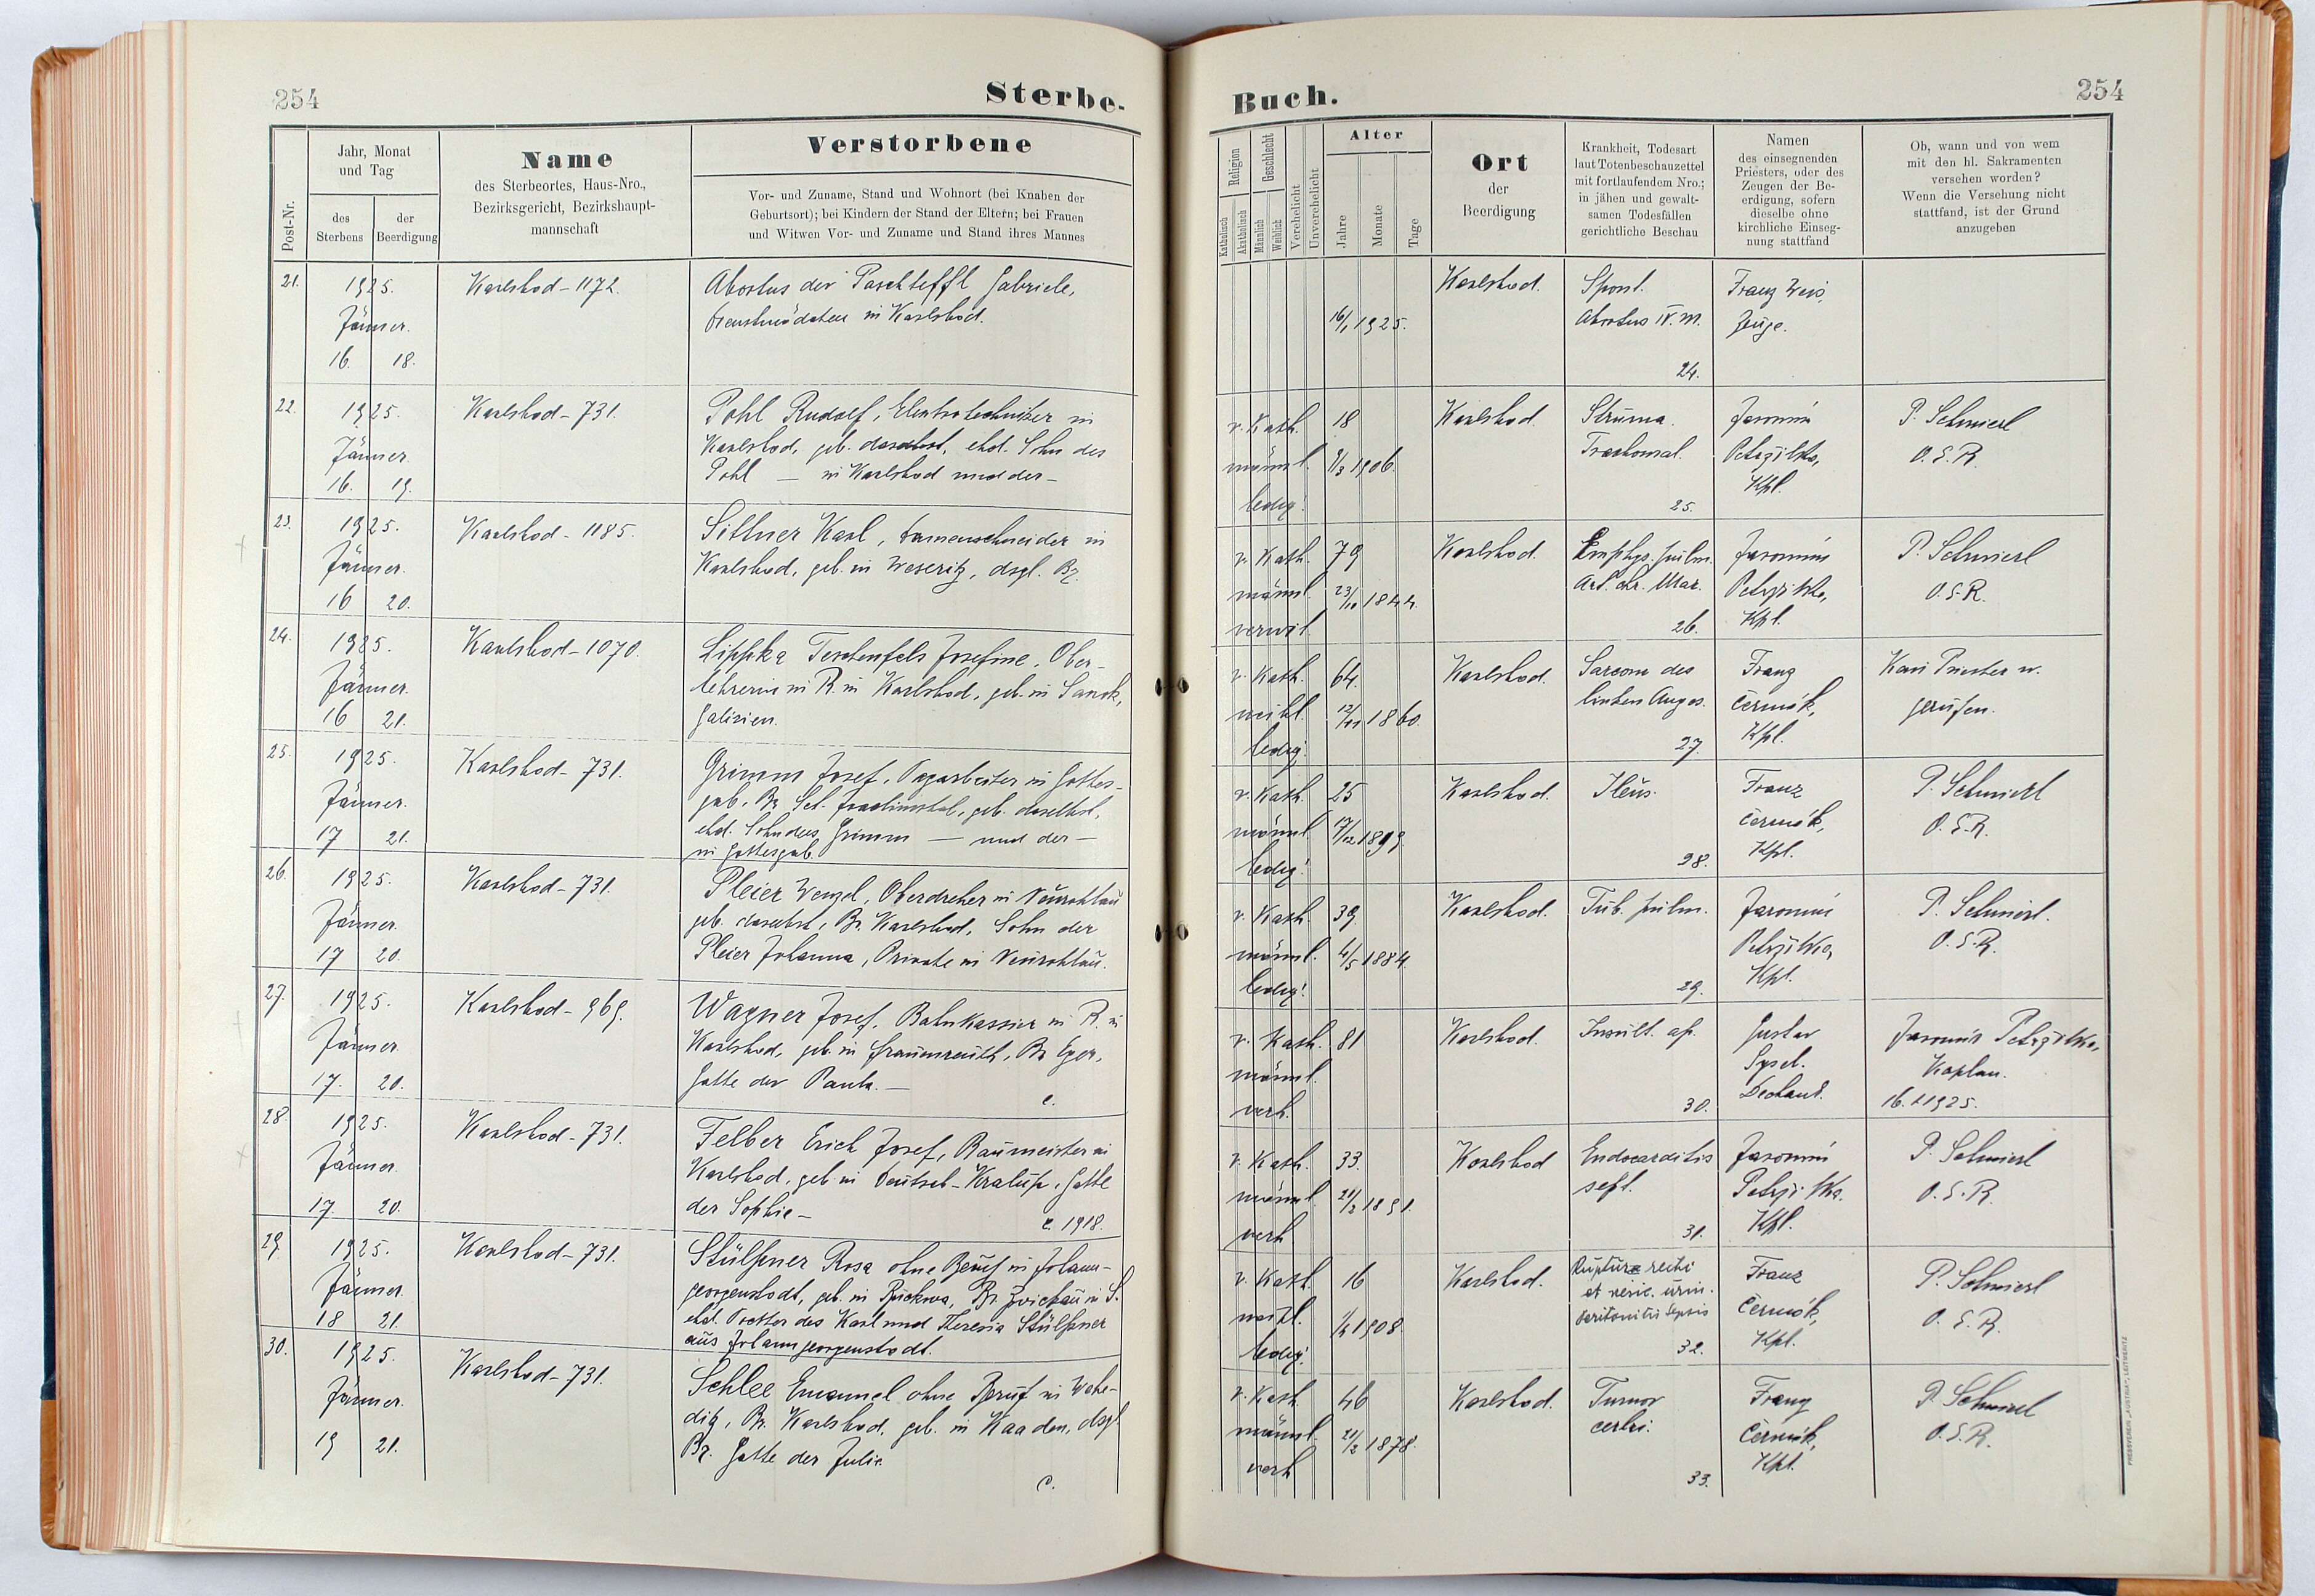 254
Sterbe-
Buch.
254
Post-Nr.
Jahr, Monat
und Tag
des
Sterbens
der
Beerdigung
Name
des Sterbeortes, Haus-Nro.,
Bezirksgericht, Bezirkshaupt-
mannschaft
Verstorbene
Vor- und Zuname, Stand und Wohnort (bei Knaben der
Geburtsort); bei Kindern der Stand der Eltern; bei Frauen
und Witwen Vor- und Zuname und Stand ihres Mannes
Religion
Katholisch
Akatholisch
Geschlecht
Männlich
Weiblich
Verehelicht
Unverehelicht
Alter
Jahre
Monate
Tage
Ort
der
Beerdigung
Krankheit, Todesart
laut Totenbeschauzettel
mit fortlaufendem Nro.;
in jähen und gewalt-
samen Todesfällen
gerichtliche Beschau
Namen
des einsegnenden
Priesters, oder des
Zeugen der Be-
erdigung, sofern
dieselbe ohne
kirchliche Einseg-
nung stattfand
Ob, wann und von wem
mit den hl. Sakramenten
versehen worden?
Wenn die Versehung nicht
stattfand, ist der Grund
anzugeben
21.
1925.
Jänner.
16. 18.
Karlsbad - 1172.
Abortus der Paschteffl Gabriele,
Dienstmädchen in Karlsbad.
16/1 1925.
Karlsbad.
Spont.
Abortus IV. M.
24.
Franz Weis,
Zeuge.
22.
1925.
Jänner.
16. 19.
Karlsbad - 731.
Pohl Rudolf, Elektrotechniker in
Karlsbad, geb. daselbst, ehel. Sohn des
Pohl — in Karlsbad und der —
r. Kath.
männl.
ledig.
18
9/3 1906.
Karlsbad.
Struma.
25.
Jaromír
Petrzilka,
Kpl.
P. Schmierl
O.S.R.
23.
1925.
Jänner.
16 20.
Karlsbad - 1185.
Sittner Karl, Damenschneider in
Karlsbad, geb. in Weseritz, dsgl. Bz.
r. Kath.
männl.
verwit.
79
23/10 1844.
Karlsbad.
Emphys. pulm.
Art. chr. Mar.
26.
Jaromír
Petrzilka,
Kpl.
P. Schmierl
O.S.R.
24.
1925.
Jänner.
16 21.
Karlsbad - 1070.
Lippka Teschenfels Josefine, Ober-
lehrerin in R. in Karlsbad, geb. in Sanok,
Galizien.
r. Kath.
weibl.
ledig.
64.
12/11 1860.
Karlsbad.
Sarcom des
linken Auges.
27.
Franz
Čermák,
Kpl.
Kein Priester w.
gerufen.
25.
1925.
Jänner.
17 21.
Karlsbad - 731.
Grimm Josef, Tagarbeiter in Gottes-
gab, Bz. Sct. Joachimstal, geb. daselbst,
ehel. Sohn des Grimm — und der —
in Gottesgab.
r. Kath.
männl.
ledig.
25
17/12 1899.
Karlsbad.
Ileus.
28.
Franz
Čermák,
Kpl.
P. Schmierl
O.S.R.
26.
1925.
Jänner.
17 20.
Karlsbad - 731.
Pleier Wenzel, Oberdreher in Neurohlau
geb. daselbst, Bz. Karlsbad, Sohn der
Pleier Johanna, Private in Neurohlau.
r. Kath.
männl.
ledig.
39.
4/5 1884.
Karlsbad.
Tub. pulm.
29.
Jaromír
Petrzilka,
Kpl.
P. Schmierl.
O.S.R.
27.
1925.
Jänner.
17. 20.
Karlsbad - 969.
Wagner Josef, Bahnkassier in R. in
Karlsbad, geb. in Frauenreuth, Bz. Eger,
Gatte der Paula. —
c.
r. Kath.
männl.
verh.
81
Karlsbad.
Insult. ap.
30.
Gustav
Dechant.
Jaromír Petrzilka,
Kaplan.
16. 1 1925.
28.
1925.
Jänner.
17. 20.
Karlsbad - 731.
Felber Erich Josef, Baumeister in
Karlsbad, geb. in Deutsch-Kralup, Gatte
der Sophie —
c. 1918.
r. Kath.
männl.
verh.
33.
1891.
Karlsbad
Endocarditis
sept.
31.
Jaromír
Petrzilka.
Kpl.
P. Schmierl
O.S.R.
29.
1925.
Jänner.
18 21.
Karlsbad - 731.
Stülpner Rosa ohne Beruf in Johann-
georgenstadt, geb. in Bz. Zwickau in S.
ehel. Tochter des Karl und Theresia Stülpner
aus Johanngeorgenstadt.
r. Kath.
weibl.
ledig.
16
1908.
Karlsbad.
Ruptura recti
et vesic. urin.
Peritonitis Sepsis
32.
Franz
Čermák,
Kpl.
P. Schmierl
O.S.R.
30.
1925.
Jänner.
19 21.
Karlsbad - 731.
Schlee Emanuel ohne Beruf in Wehe-
ditz, Bz. Karlsbad, geb. in Kaaden, dsgl.
Bz. Gatte der Julie
c.
r. Kath.
männl.
verh
46
21/2 1878.
Karlsbad.
Tumor
cerbri.
33.
Franz
Čermák,
Kpl.
P. Schmierl
O.S.R.